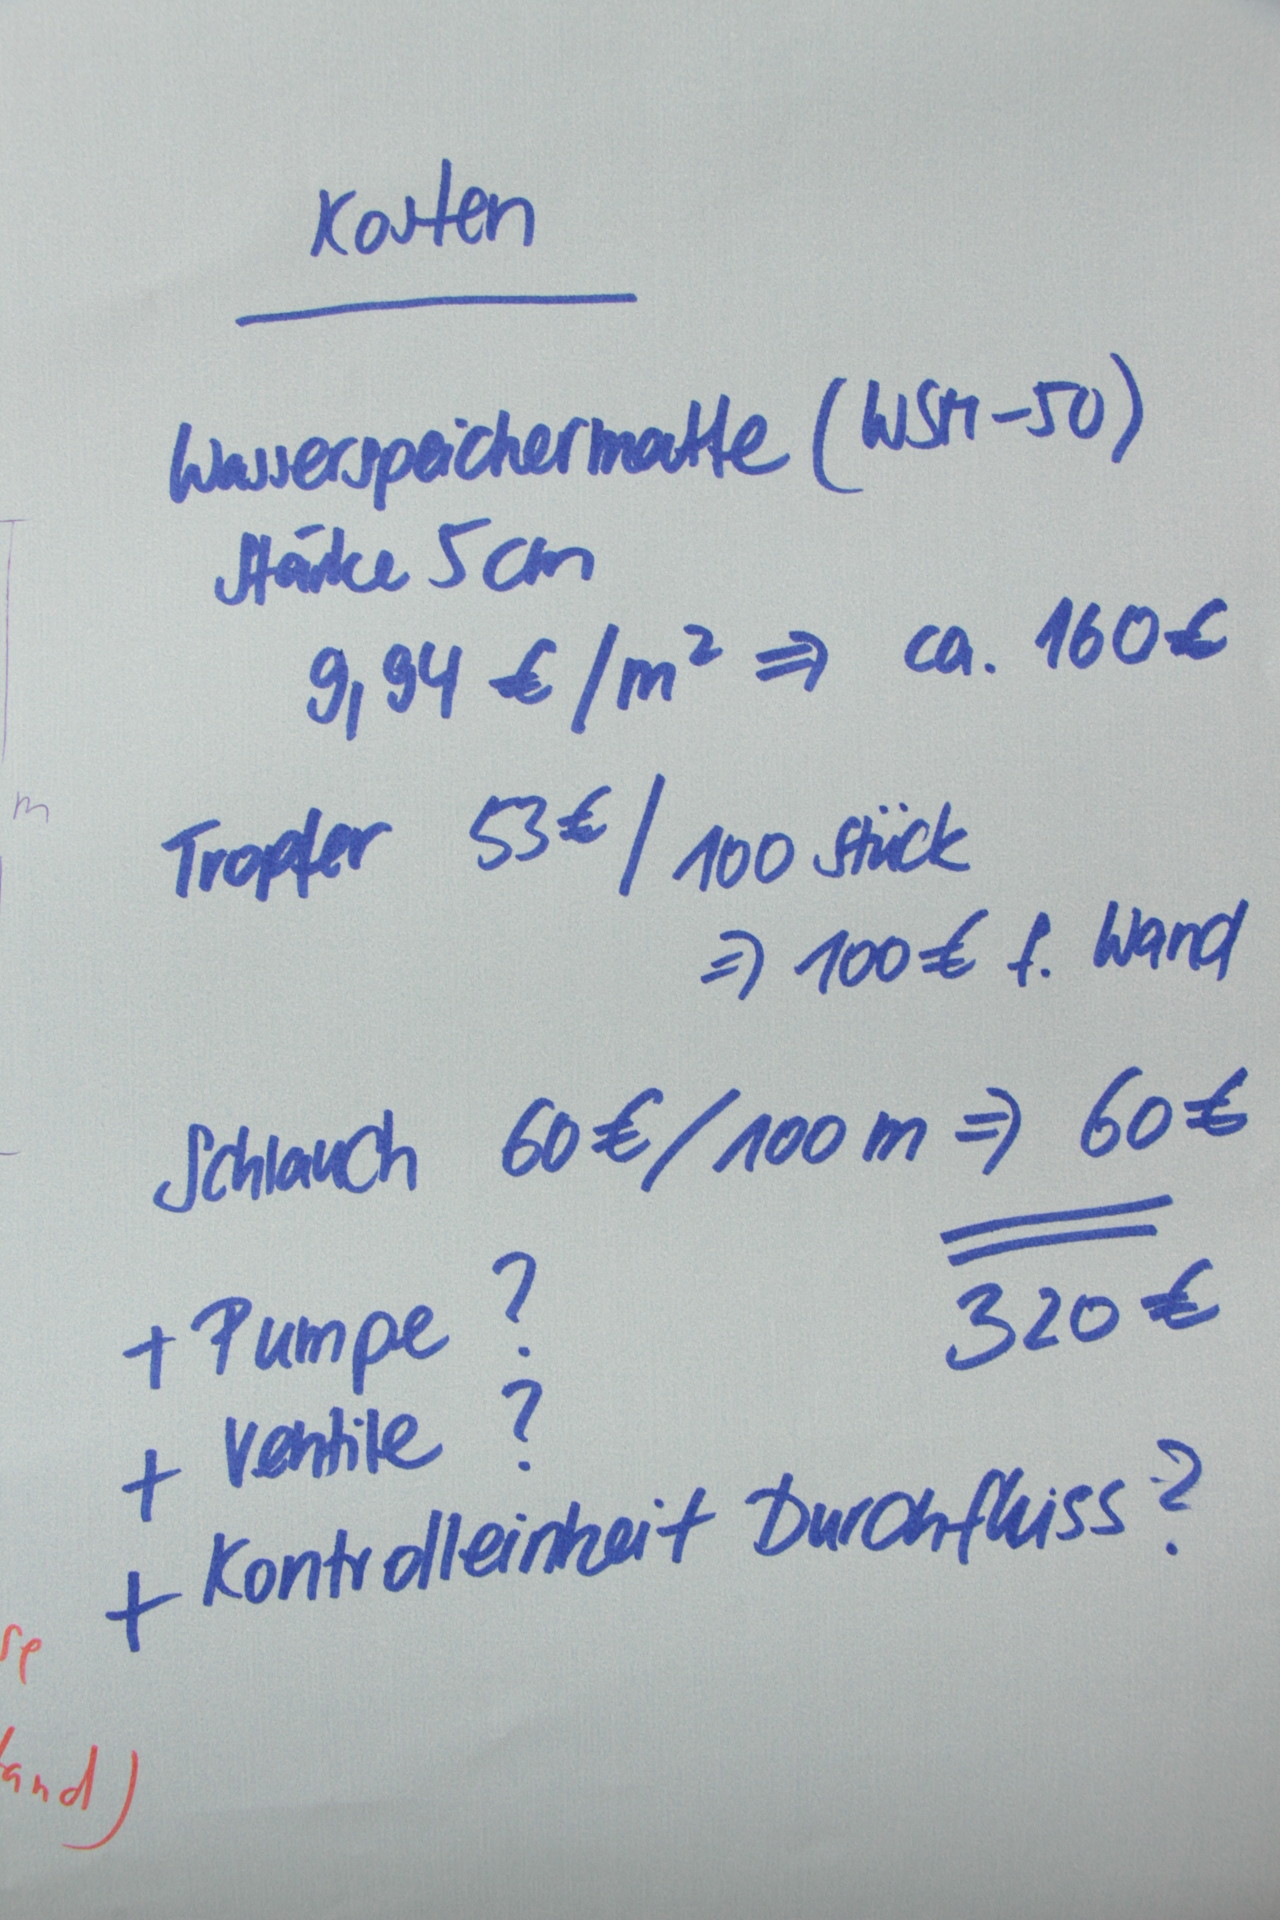 Kosten
Wasserspeichermatte (WSM-50)
Stärke 5 cm
9,94 €/m² => ca. 160 €
Tropfer 53 € / 100 Stück
=> 100 € f. Wand
Schlauch 60 € / 100 m => 60 €
320 €
+ Pumpe ?
+ Ventile ?
+ Kontrolleinheit Durchfluss ?
m